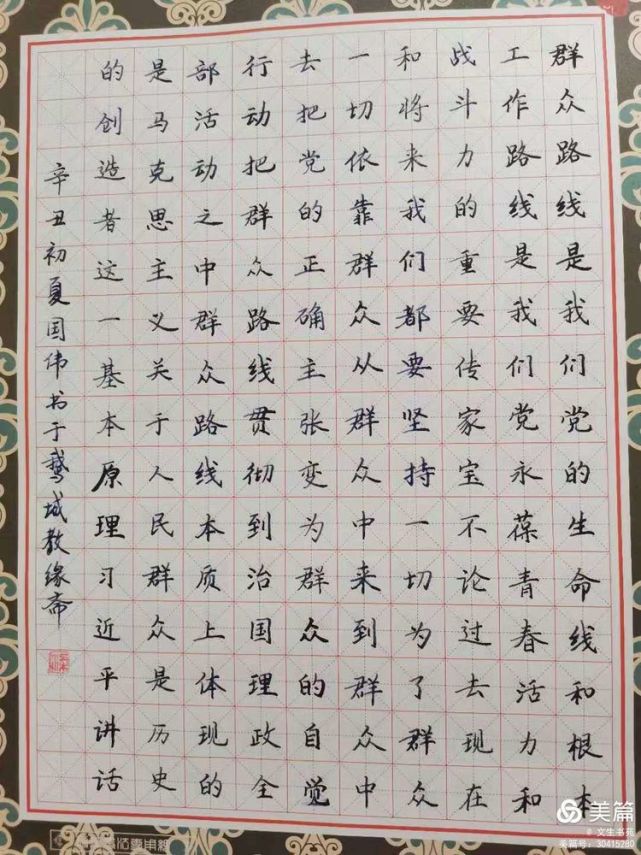 群众路线是我们党的生命线和根本
工作路线是我们党永葆青春活力和
战斗力的重要传家宝不论过去现在
和将来我们都要坚持一切为了群众
一切依靠群众从群众中来到群众中
去把党的正确主张变为群众的自觉
行动把群众路线贯彻到治国理政全
部活动之中群众路线本质上体现的
是马克思主义关于人民群众是历史
的创造者这一基本原理习近平讲话
辛丑初夏国伟书于鹅城教缘斋
美篇
# 文生书苑
美篇号：30415280